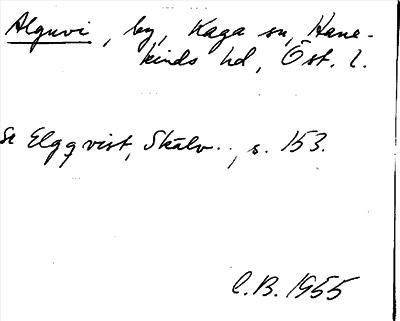 Alguvi, by, Kaga sn, Hane-
kinds hd, Öst. l.
Se Elgqvist, Skälv.., s. 153.
C.B. 1955